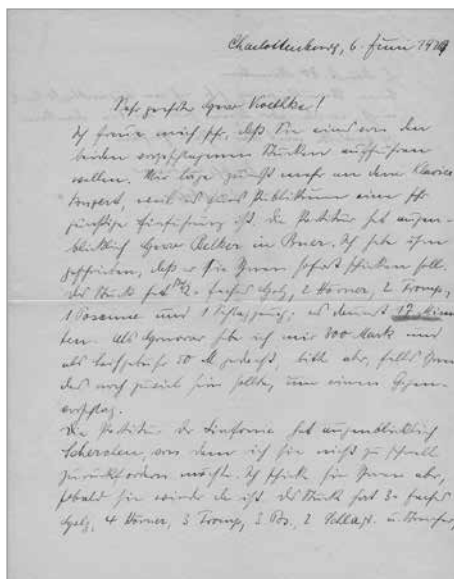 Charlottenburg, 6. Juni 1929
Sehr geehrter Herr Koethke!
Ich freue mich sehr, daß Sie eines von den
beiden vorgeschlagenen Stücken aufführen
wollen. Mir läge zunächst mehr an dem Klavier
konzert, weil es fürs Publikum eine sehr
günstige Einführung ist. Die Partitur hat augen-
blicklich Herr Oelker in Buer. Ich habe ihm
geschrieben, daß er sie Ihnen sofort schicken soll.
Das Stück hat 2-faches Holz, 2 Hörner, 2 Tromp.,
1 Posaune und 1 Schlagzeug; es dauert 12 Minu
ten. Als Honorar habe ich mir 300 Mark und
als Leihgebühr 50 M gedacht, bitte aber, falls Ihnen
das noch zuviel sein sollte, um einen Gegen-
vorschlag.
Die Partitur der Sinfonie hat augenblicklich
Scherchen, von dem ich sie nicht zu schnell
zurückfordern möchte. Ich schicke sie Ihnen aber,
sobald sie wieder da ist. Das Stück hat 3-faches
Holz, 4 Hörner, 3 Tromp., 3 Pos., 2 Schlagz. u. Streicher,